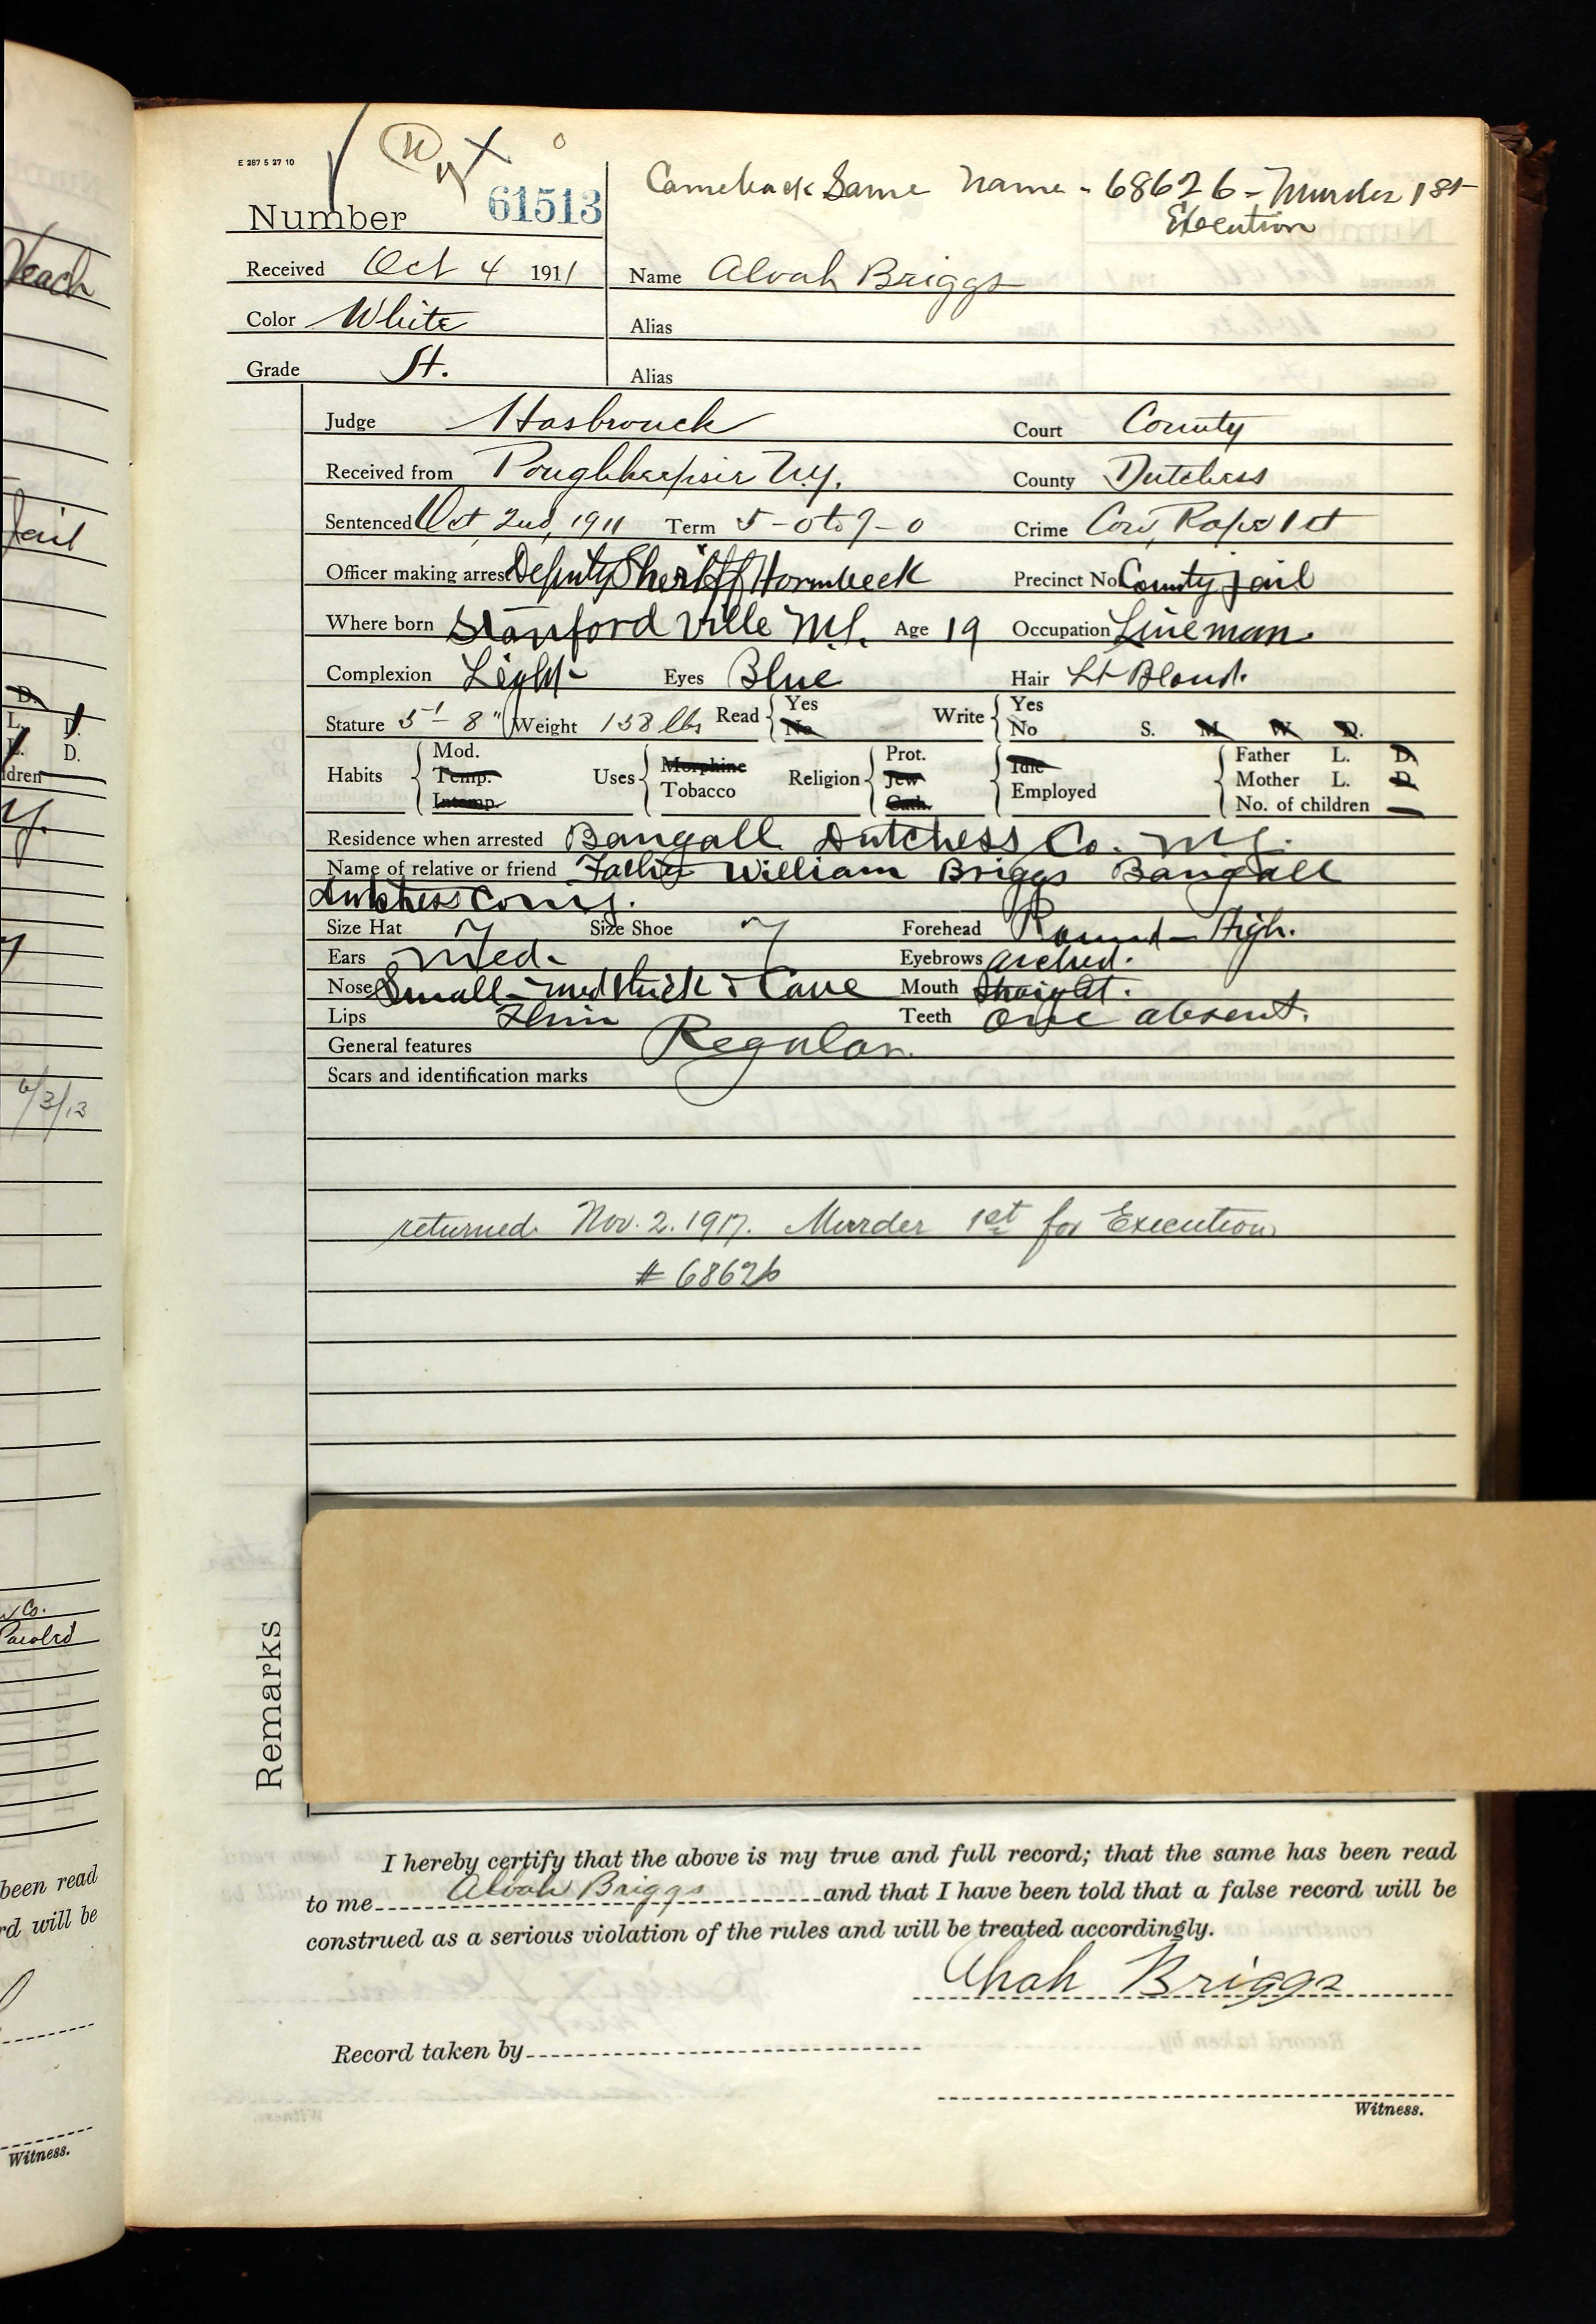 E 287 5 27 10
Number 61513
Came back Same Name - 68626 - Murder 1st
Execution
Received Oct 4 1911
Name Alvah Briggs
Color White
Alias
Grade St.
Alias
Judge Hasbrouck Court County
Received from Poughkeepsie N.Y. County Dutchess
Sentenced Oct 2nd, 1911 Term 5-0 to 9-0 Crime Con, Rape 1st
Officer making arrest Deputy Sheriff Hornbeck Precinct No County Jail
Where born Stanfordville N.Y. Age 19 Occupation Lineman.
Complexion Light Eyes Blue Hair Lt Blond.
Stature 5'-8" Weight 138 lbs Read Yes No Write Yes No S. M. W. D.
Habits Mod. Temp. Intemp. Uses Morphine Tobacco Religion Prot. Jew Cath. Idle Employed Father L. D. Mother L. D. No. of children
Residence when arrested Bangall Dutchess Co. N.Y.
Name of relative or friend Father William Briggs Bangall
Dutchess Co N.Y.
Size Hat 7 Size Shoe 7 Forehead Round - High.
Ears Med. Eyebrows arched.
Nose Small - med thick & Cave Mouth Straight.
Lips Thin Teeth one absent.
General features Regular.
Scars and identification marks
returned Nov. 2. 1917. Murder 1st for Execution
# 68626
Remarks
I hereby certify that the above is my true and full record; that the same has been read
to me Alvah Briggs and that I have been told that a false record will be
construed as a serious violation of the rules and will be treated accordingly.
Alvah Briggs
Record taken by
Witness.
Veach
Jail
D.
L. D.
L. D.
ldren
y.
6/3/13
Co.
Paroled
been read
rd will be
Witness.